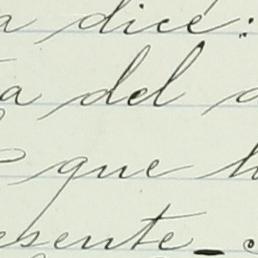 a dice:
a del
que
esente_